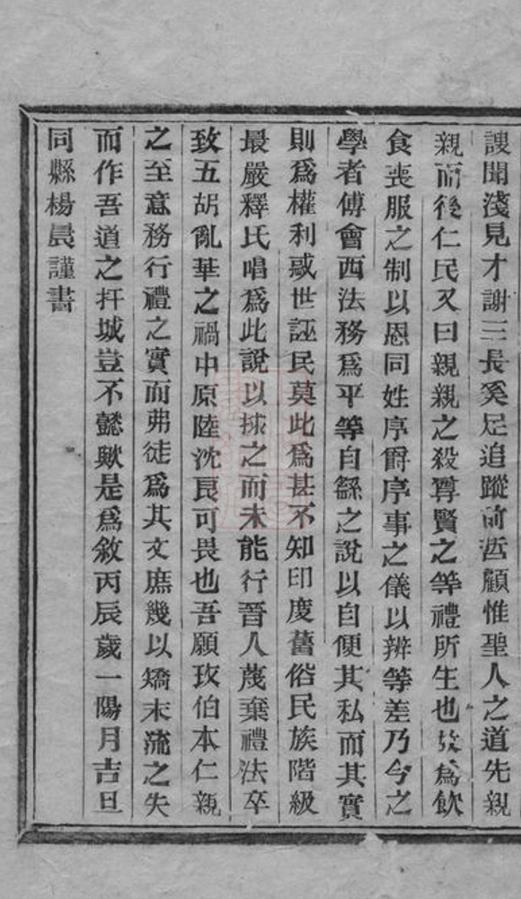 謏聞淺見才謝三長奚足追蹤前哲顧惟聖人之道先親
親而後仁民又曰親親之殺尊賢之等禮所生也故為飲
食喪服之制以恩同姓序爵序事之儀以辨等差乃今之
學者傅會西法務為平等自繇之說以自便其私而其實
則為權利惑世誣民莫此為甚不知印度舊俗民族階級
最嚴釋氏唱為此說以捄之而未能行晉人蔑棄禮法卒
致五胡亂華之禍中原陸沈良可畏也吾願玫伯本仁親
之至意務行禮之實而弗徒為其文庶幾以矯末流之失
而作吾道之扞城豈不懿歟是為敘丙辰歲一陽月吉旦
同縣楊晨謹書